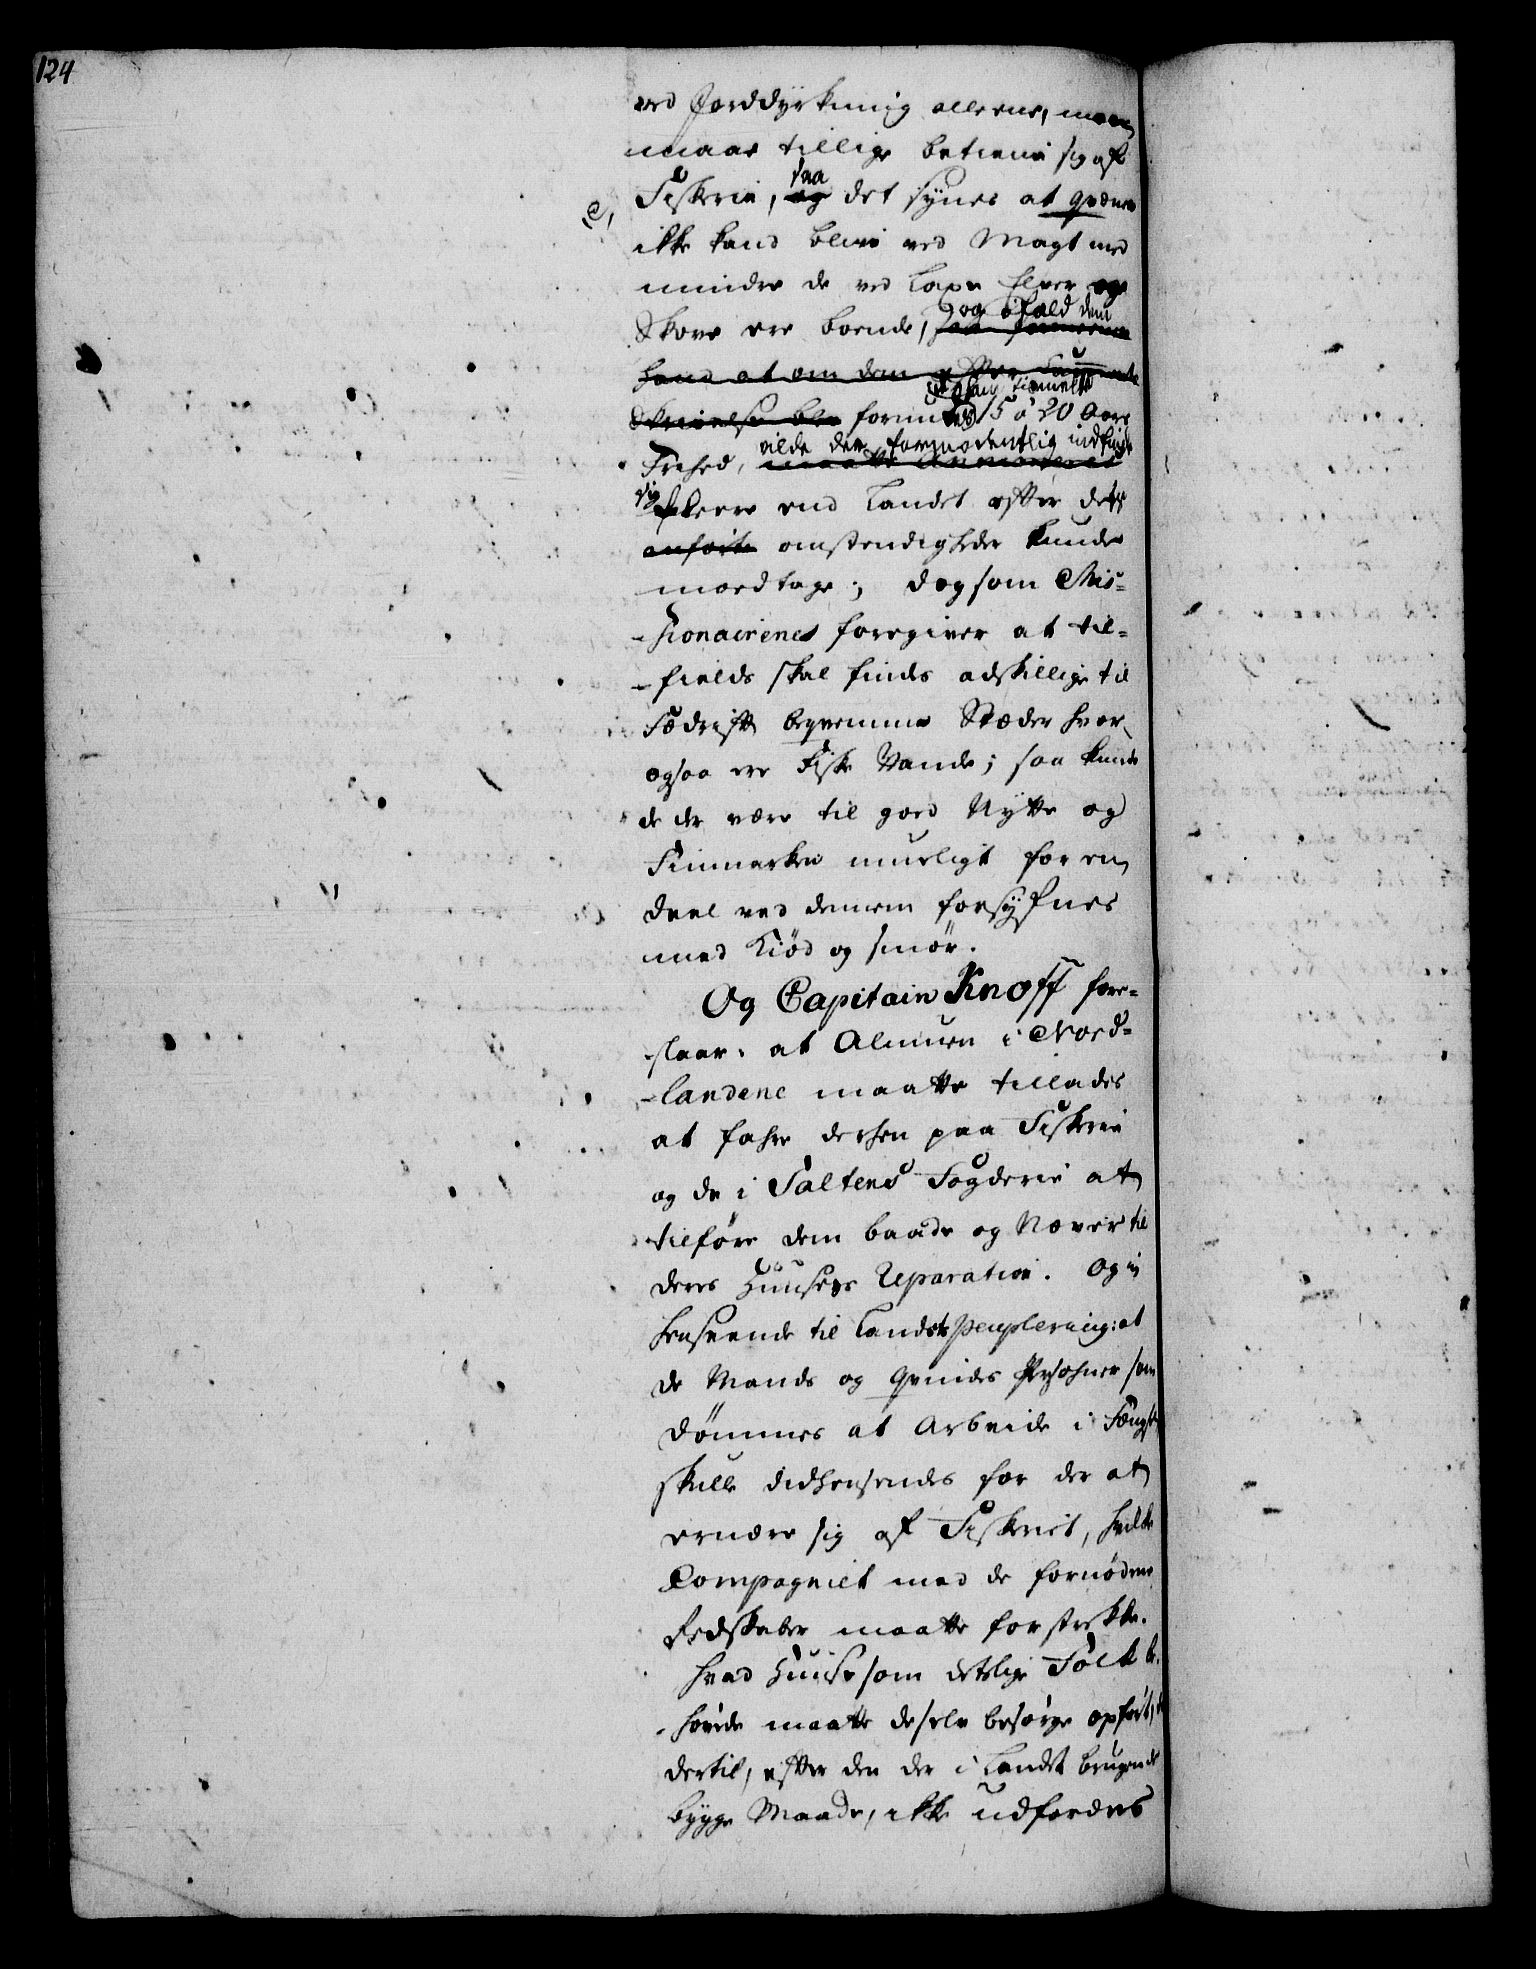 124
ved Jorddyrkning alleene, men
maae tillige betiene sig af
Fiskerie, og saa det synes at qvæner
ikke kand blive ved Magt med
mindre de ved Laxe Elver og
Skove ere boende, og ifald dem
hand at om dem
Skrivelse blev forundtes 15 à 20 Aars
Frihed, vilde der formodentlig indfinde
sig fleere end Landet efter dets
anførte omstendigheder kunde
moedtage; dog som Mis-
sionairenes foregiver at til-
fields skal findes adskillige til
Fædrift beqvemme Stæder hvor
ogsaa ere Fiske Vande; saa kunde
de der være til goed Nytte og
Finmarken mueligt for en
deel ved dennem forsyfnes
med Kiød og smør.
Og Capitain Knoff fore-
slaar: at Almuen i Nord-
landene maatte tillades
at fahre derhen paa Fiskerie
og de i Saltens Fogderie at
tilføre dem baade og Næver til
deres Huuses Reparation. Og i
henseende til Landets Peuplering: at
de Mands og Qvindes Persohner som
dømmes at Arbeide i Fængsel
skulle didhensendes for der at
ernære sig af Fiskeriet, hvilke
Compagniet med de fornødene
Redskaber maatte forstrekke.
hvad Huuse som detslige Folk be-
høvede maatte de selv besørge opført,
dertil, efter den der i Landet brugende
bygge Maade, ikke udfordres